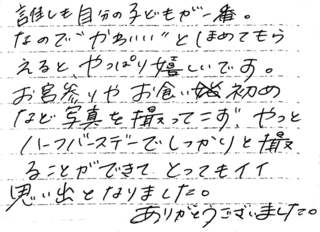 誰しも自分の子どもが一番。
なので"かわいい"とほめてもら
えると、やっぱり嬉しいです。
お宮参りやお食い初め
など写真を撮ってこず、やっと
ハーフバースデーでしっかりと撮
ることができて、とってもイイ
思い出となりました。
ありがとうございました。